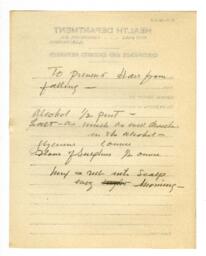 HEALTH DEPARTMENT
To prevent Hair from
falling -
Alcohol 1/2 pint -
Salt - as much as will dissolve
in the alcohol -
Glycerine 1 ounce
Flour of Sulphur 1/2 ounce
Mix & rub into scalp
every morning -